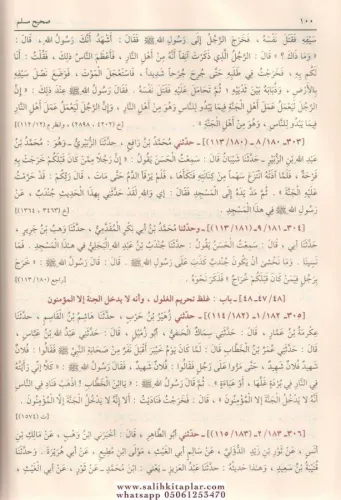 ١٠٠
صحيح مسلم
سيفه فقتل نفسه، فخرج الرجل إلى رسول الله ﷺ فقال: أشهد أنك رسول الله، قال:
«وما ذاك؟» قال: الرجل الذي ذكرت آنفاً أنه من أهل النار، فأعظم الناس ذلك، فقلت: أنا
لكم به، فخرجت في طلبه حتى جرح جرحاً شديداً، فاستعجل الموت، فوضع نصل سيفه
بالأرض، وذبابه بين ثدييه، ثم تحامل عليه فقتل نفسه. فقال رسول الله ﷺ عند ذلك: «إن
الرجل ليعمل عمل أهل الجنة فيما يبدو للناس وهو من أهل النار، وإن الرجل ليعمل عمل أهل النار
فيما يبدو للناس، وهو من أهل الجنة».
٣٠٣ـ ٨/١٨٠ ـ (١١٣/١٨٠) ـ حدثني محمد بن رافع، حدثنا الزبيري ـ وهو: محمد بن
عبد الله بن الزبير ـ حدثنا شيبان، قال: سمعت الحسن يقول: «إن رجلاً ممن كان قبلكم خرجت به
قرحة، فلما آذته انتزع سهماً من كنانته فنكأها، فلم يرقأ الدم حتى مات، قال ربكم: قد حرمت
عليه الجنة». ثم مد يده إلى المسجد فقال: إي والله لقد حدثني بهذا الحديث جندب، عن
رسول الله ﷺ في هذا المسجد.
٣٠٤ـ ٩/١٨١ ـ (١١٣/١٨١) ـ وحدثنا محمد بن أبي بكر المقدمي، حدثنا وهب بن جرير،
حدثنا أبي، قال: سمعت الحسن يقول: حدثنا جندب بن عبد الله البجلي في هذا المسجد. فما
نسينا، وما نخشى أن يكون جندب كذب على رسول الله ﷺ. قال: قال رسول الله ﷺ: «خرج
برجل فيمن كان قبلكم خراج» فذكر نحوه.
[راجع (١١٣/١٨٠)]
[٤٧/٤٨ـ ٤٨] ـ باب: غلظ تحريم الغلول، وأنه لا يدخل الجنة إلا المؤمنون
٣٠٥ـ ١/١٨٢ ـ (١١٤/١٨٢) ـ حدثني زهير بن حرب، حدثنا هاشم بن القاسم، حدثنا
عكرمة بن عمار، قال: حدثني سماك الحنفي، أبو زميل، قال: حدثني عبد الله بن عباس،
قال: حدثني عمر بن الخطاب قال: لما كان يوم خيبر أقبل نفر من صحابة النبي ﷺ فقالوا: فلان
شهيد، فلان شهيد، حتى مروا على رجل فقالوا: فلان شهيد، فقال رسول الله ﷺ: «كلا إني رأيته
في النار في بردة غلها، أو عباءة». ثم قال رسول الله ﷺ: «يا ابن الخطاب! اذهب فناد في الناس
أنه لا يدخل الجنة إلا المؤمنون»، قال: فخرجت فناديت: ألا إنه لا يدخل الجنة إلا المؤمنون.
[ت (١٥٧٤)]
٣٠٦ـ ٢/١٨٣ ـ (١١٥/١٨٣) ـ حدثني أبو الطاهر، قال: أخبرني ابن وهب، عن مالك بن
أنس، عن ثور بن زيد الدؤلي، عن سالم أبي الغيث، مولى ابن مطيع، عن أبي هريرة. وحدثنا
قتيبة بن سعيد، وهذا حديثه: حدثنا عبد العزيز ـ يعني: ابن محمد ـ عن ثور، عن أبي الغيث،
www.salihkitaplar.com
whatsapp 05061253470